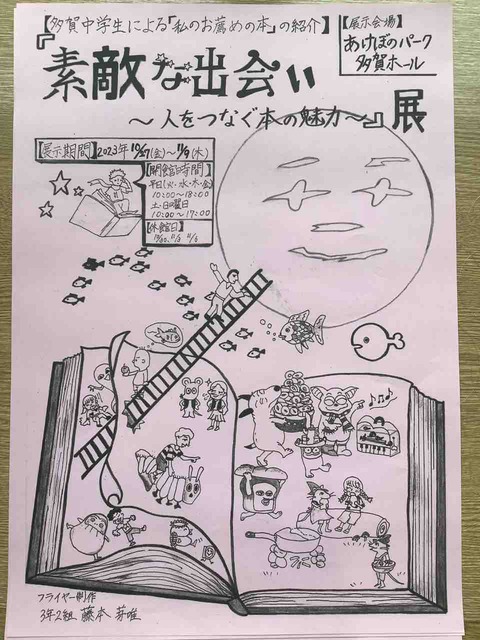 【多賀中学生による「私のお薦めの本」の紹介】
【展示会場】
あけぼのパーク
多賀ホール
『素敵な出会い
～人をつなぐ本の魅力～』展
【展示期間】2023年10/27(金)～11/9(木)
【開館時間】
平日(火・水・木・金)
10:00～18:00
土・日曜日
10:00～17:00
【休館日】
フライヤー制作
3年2組 藤本 芽唯